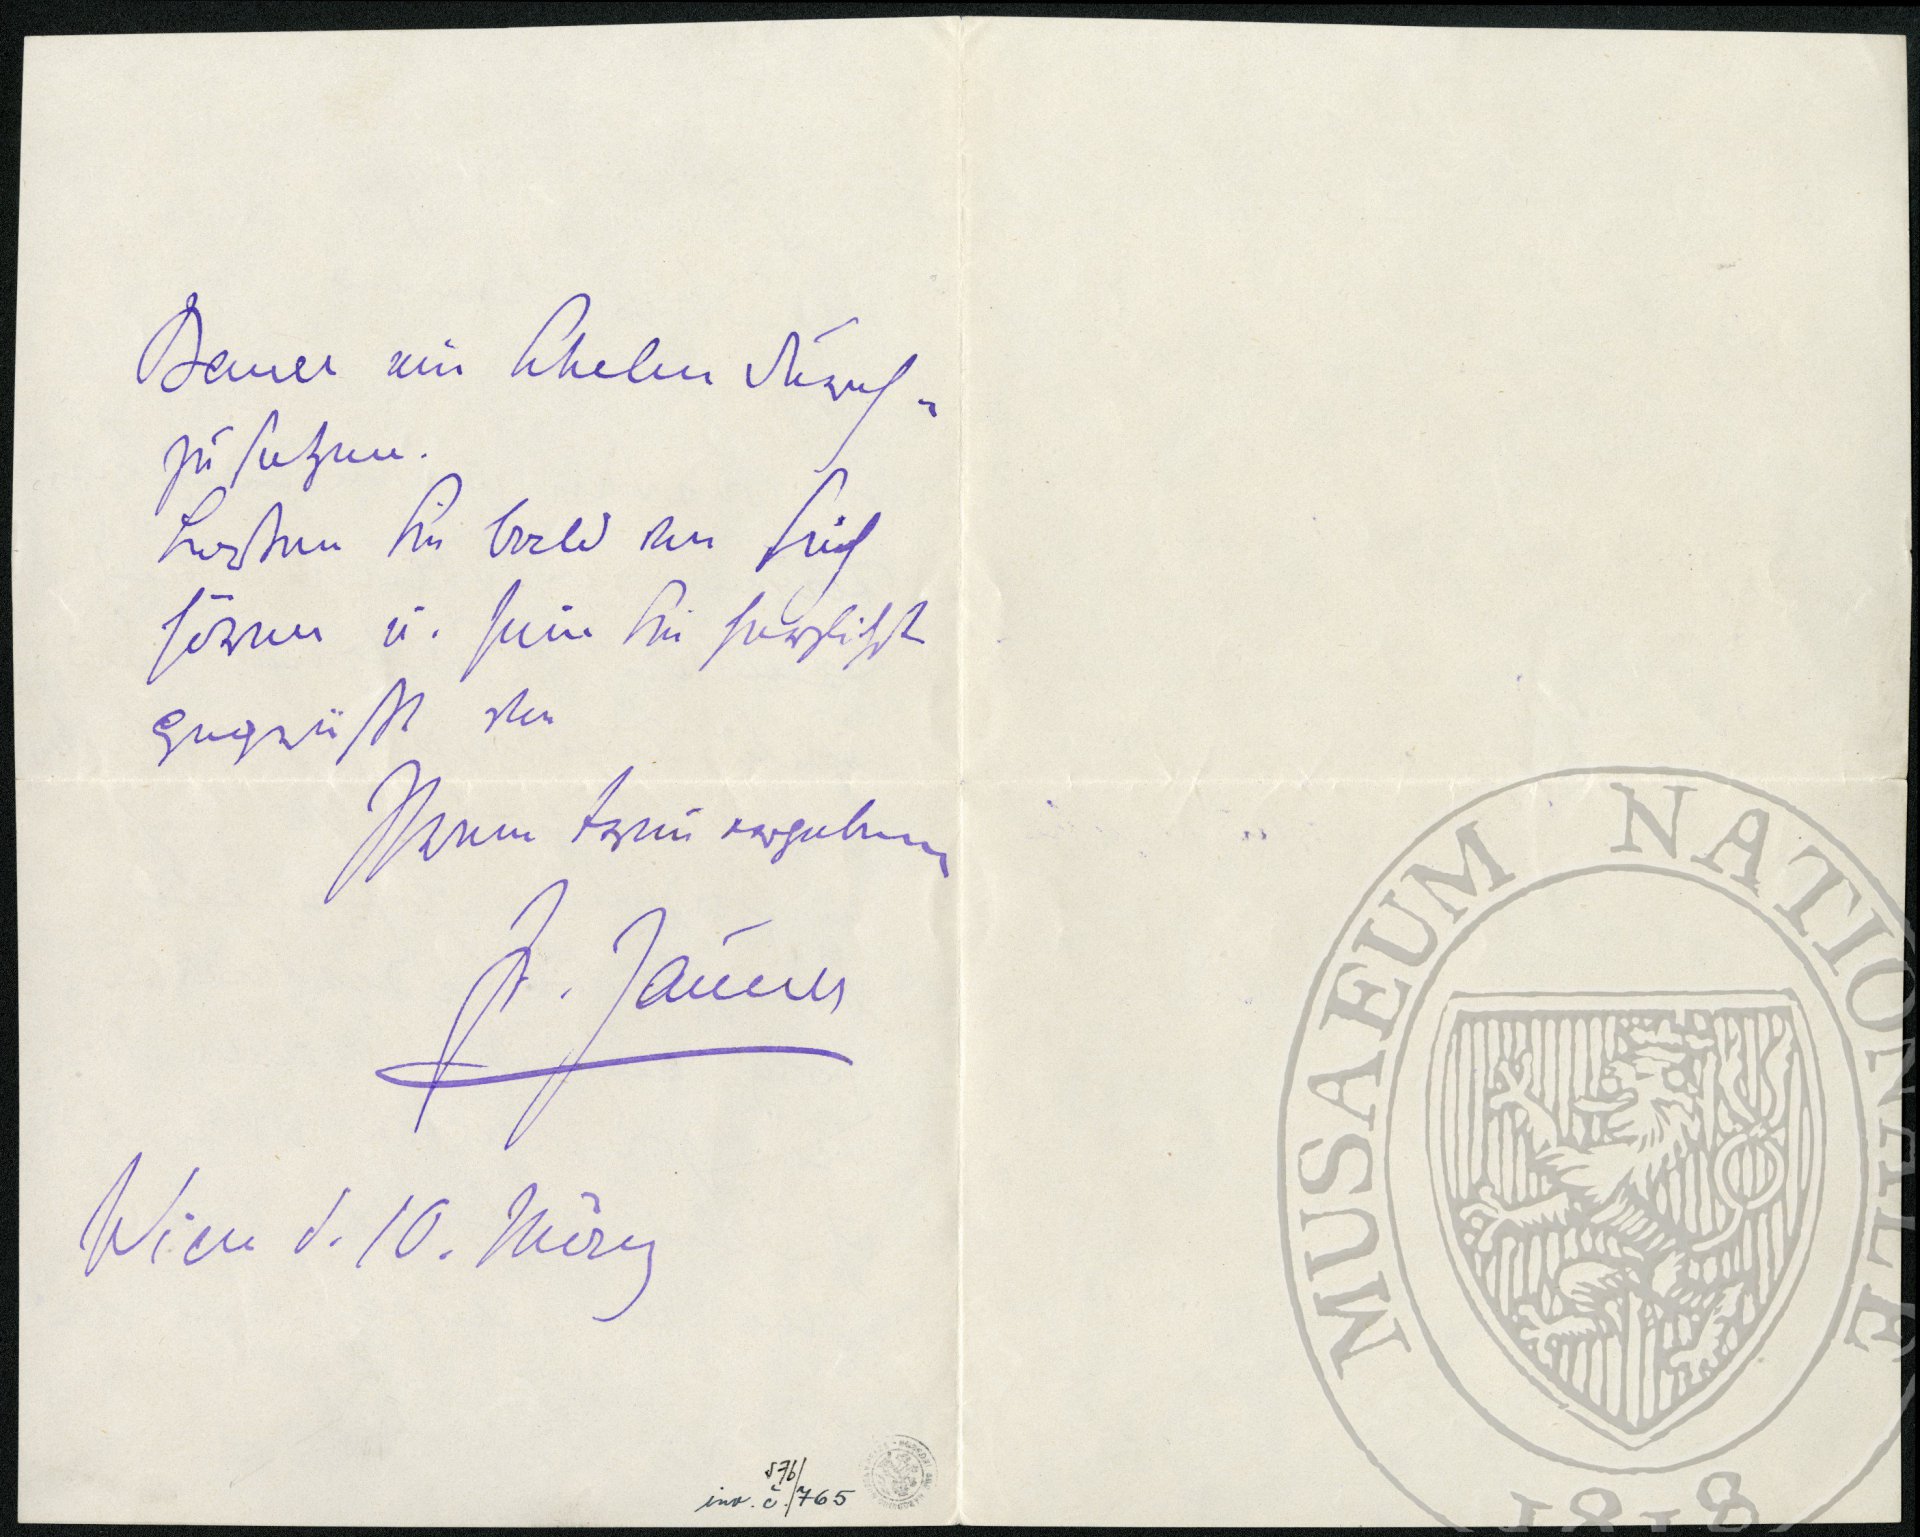 Bauer ein Theken durch-
zusetzen.
Lassen Sie bald von sich
hören u. seien Sie herzlichst
gegrüßt von
Ihrem treu ergebenen
F. Jauner
Wien d. 10. März
576/
inv. č. 765
MUSAEUM NATIONALE
1818